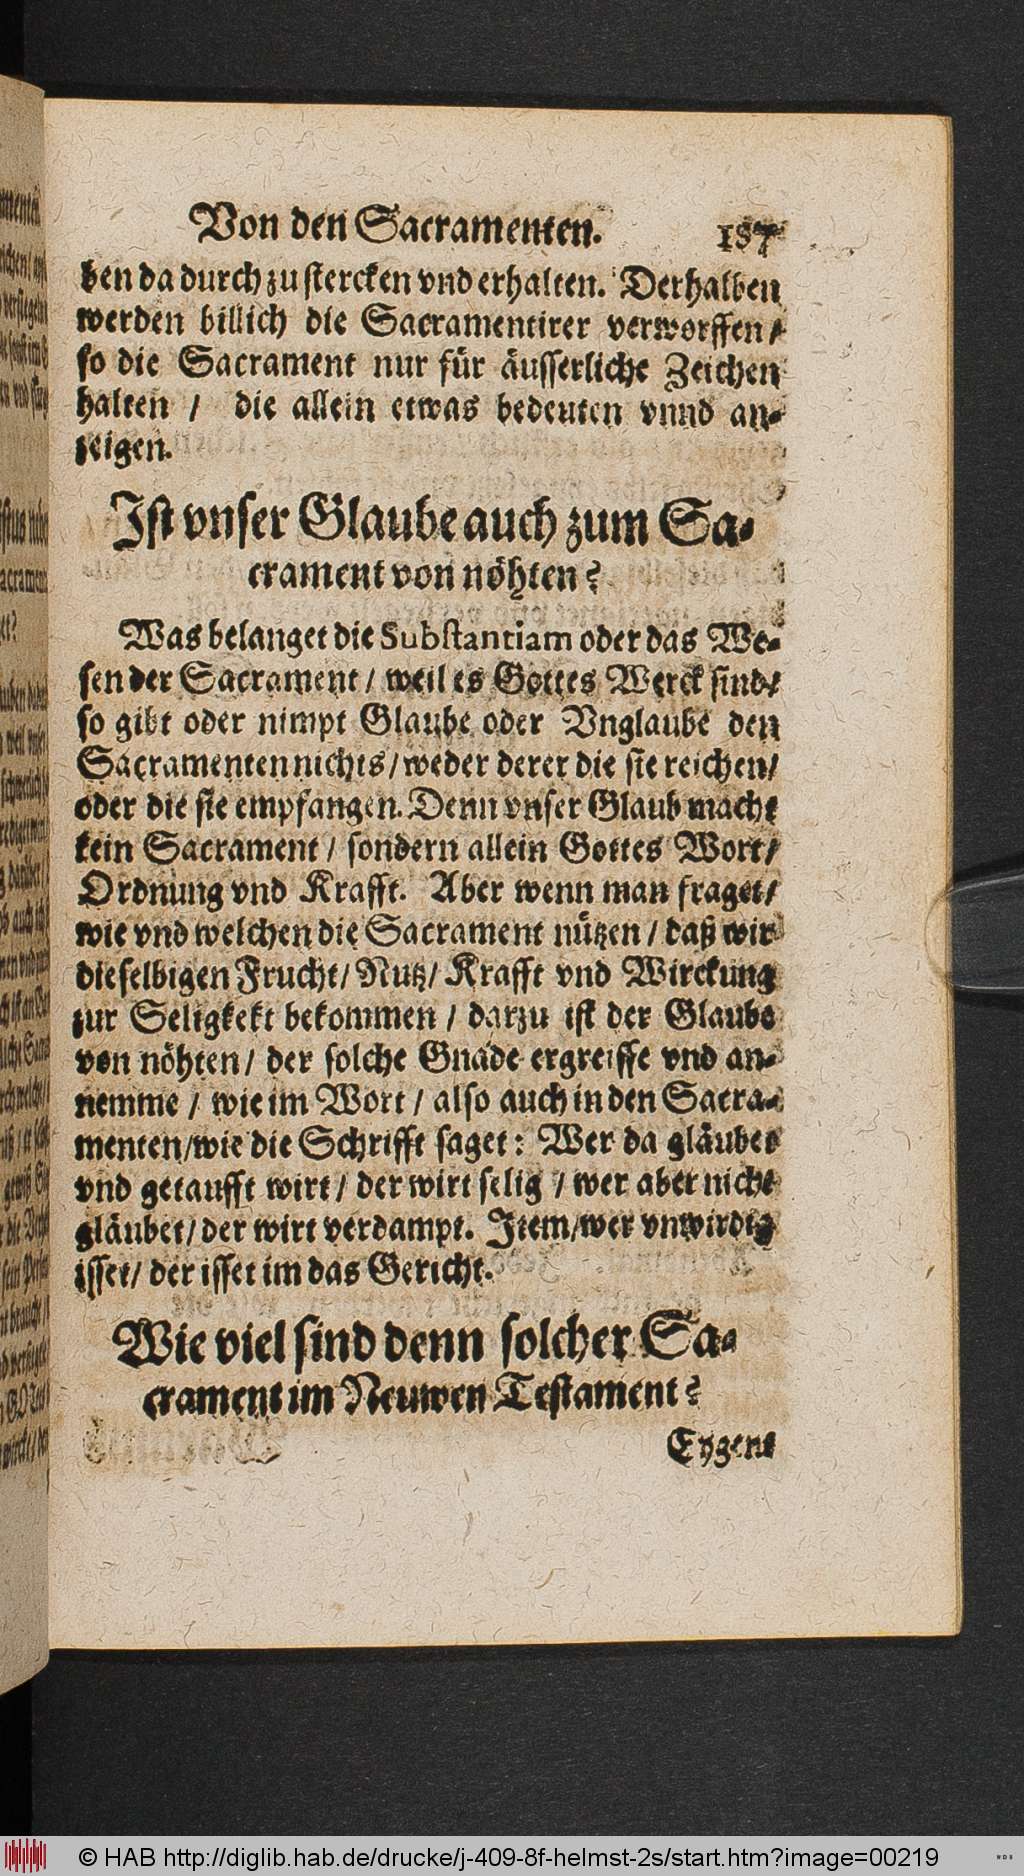 Von den Sacramenten. 187
ben da durch zu stercken vnd erhalten. Derhalben
werden billich die Sacramentirer verworffen /
so die Sacrament nur für äusserliche Zeichen
halten / die allein etwas bedeuten vnnd an-
zeigen.
Ist vnser Glaube auch zum Sa-
crament von nöhten?
Was belanget die Substantiam oder das We-
sen der Sacrament / weil es Gottes Werck sind /
so gibt oder nimpt Glaube oder Vnglaube den
Sacramenten nichts / weder derer die sie reichen /
oder die sie empfangen. Denn vnser Glaub macht
kein Sacrament / sondern allein Gottes Wort /
Ordnung vnd Krafft. Aber wenn man fraget /
wie vnd welchen die Sacrament nützen / daß wir
dieselbigen Frucht / Nutz / Krafft vnd Wirckung
zur Seligkekt bekommen / darzu ist der Glaube
von nöhten / der solche Gnade ergreiffe vnd an-
nemme / wie im Wort / also auch in den Sacra-
menten / wie die Schrifft saget: Wer da gläubet
vnd getaufft wirt / der wirt selig / wer aber nicht
gläubet / der wirt verdampt. Item / wer vnwirdig
isset / der isset im das Gericht.
Wie viel sind denn solcher Sa-
crament im Neuwen Testament?
Eygent
© HAB http://diglib.hab.de/drucke/j-409-8f-helmst-2s/start.htm?image=00219